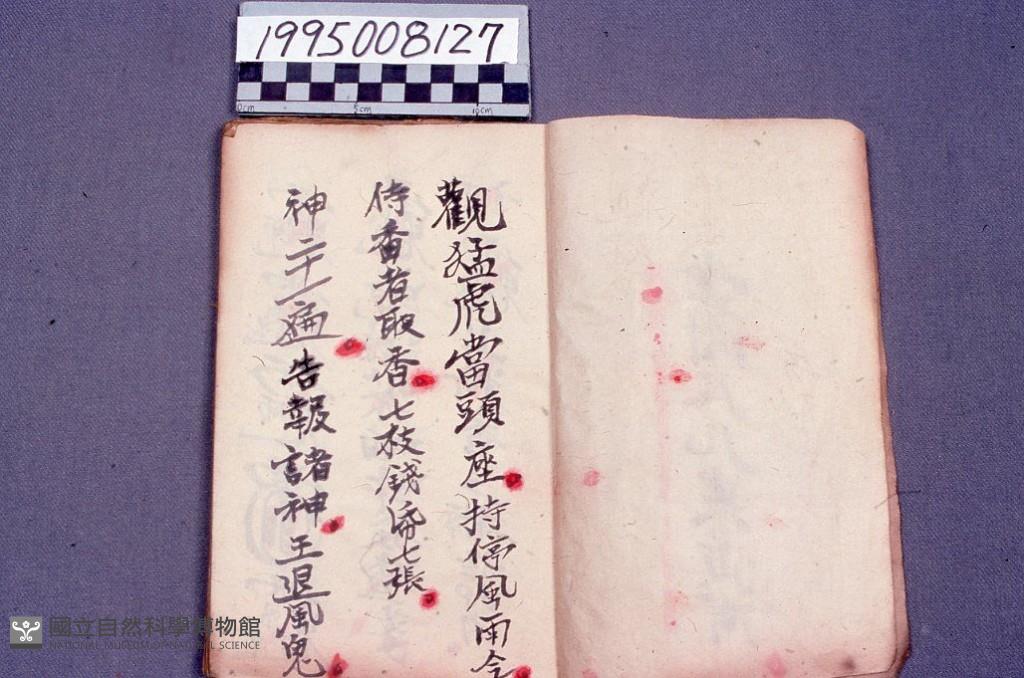 1995008127
0cm 5cm 10cm
觀猛虎當頭座持停風雨令
侍香者取香七枝錢帋七張
神二十一遍告報諸神王退風鬼
國立自然科學博物館
NATIONAL MUSEUM OF NATURAL SCIENCE